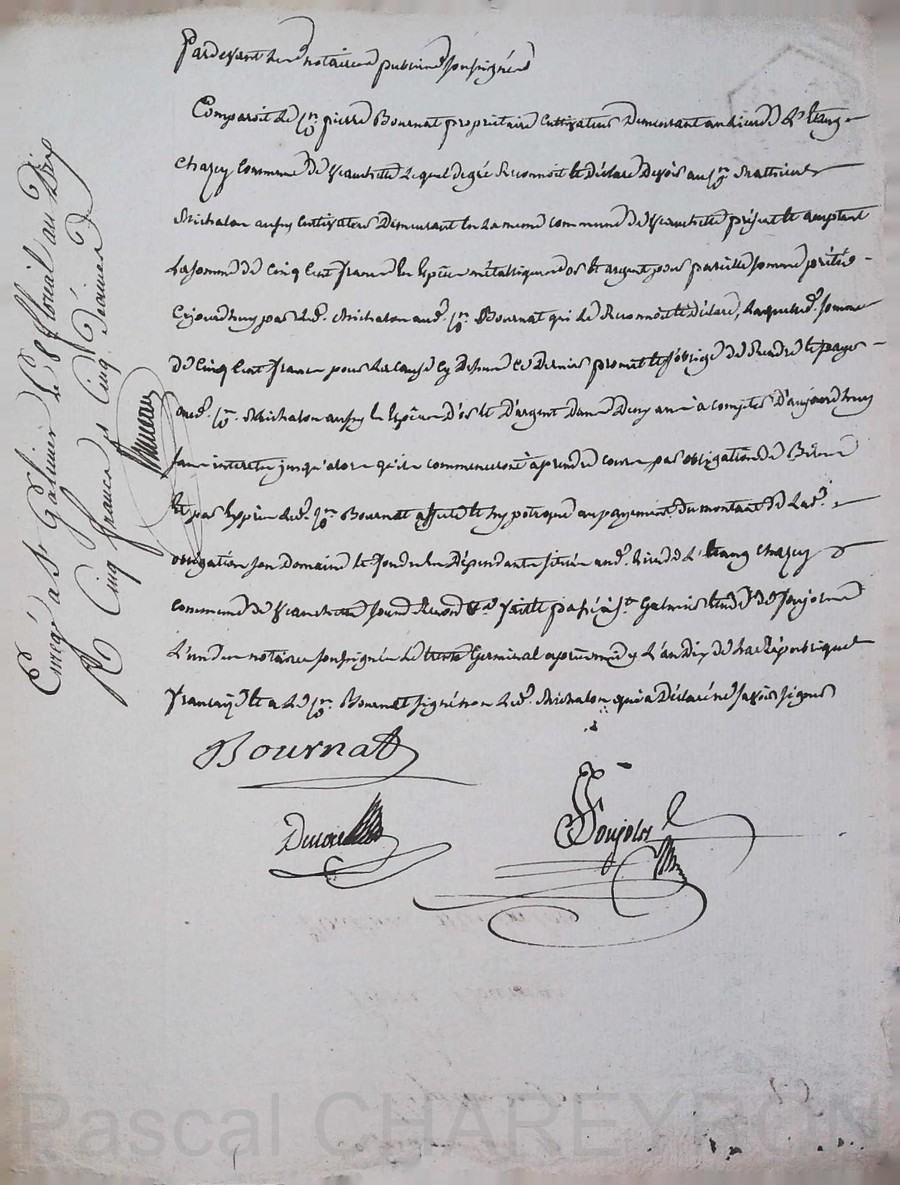 Pardevant les notaires publics soussignés
Comparoit le Cn pierre Bournat propriétaire Cultivateur Demeurant au lieu de L'Etang
Chazy Commune de Veauchette Lequel de gré Reconnoit et Déclare Devoir au Cn Mathieu
Michalon aussy Cultivateur Demeurant en La meme commune de Veauchette présent et acceptant
La somme de Cinq Cent francs En Espèces métalliques d'or et argent pour pareille somme prétée
Cejourdhuy par Led. Michalon aud. Cn Bournat qui le Reconnoit et Déclare, Laquelle d. somme
de Cinq Cent francs pour Les causes cy Dessus Ce Dernier promet et s'oblige de Rendre et payer
aud. Cn Michalon aussy En Espèces D'or et D'argent Dans Deux ans à compter D'aujourdhuy
sans interets jusqu'alors qu'ils commenceront à prendre cours par obligation de Biens
Et par Exprès Led. Cn Bournat affecte et hypotèque au payement du montant de La d.
obligation son Domaine et fonds En Dépendants situés aud. Lieu de L'Etang Chazy
commune de Veauchette sous Renon. &a faitte passé à St. Galmier Etude de Poujolas
L'un des notaires soussignés Le trente Germinal après midy L'an Dix de La République
française Et a Led. Cn Bournat signé non Led. Michalon qui a Déclaré ne savoir signer
Bournat
Poujolas
Enregé à St Galmier Le 8 floréal an Dix
R Cinq francs Cinq Décimes
Pascal CHAREYRON